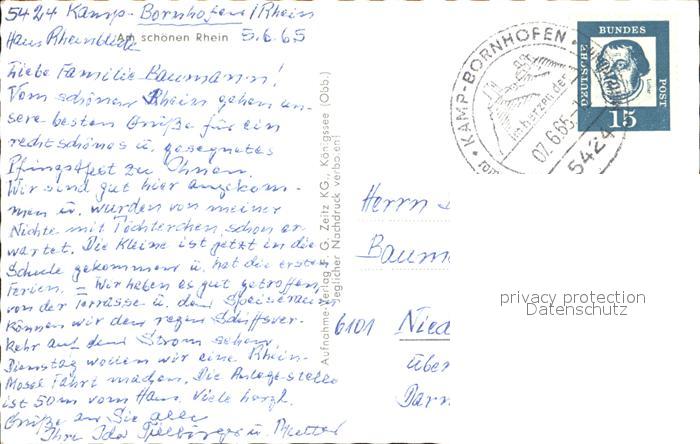 5424 Kamp-Bornhofen/Rhein
Haus Rheinblick 5.6.65
Am schönen Rhein
Liebe Familie Baumann!
Vom schönen Rhein gehen un-
sere besten Grüße für ein
recht schönes u. gesegnetes
Pfingstfest zu Ihnen.
Wir sind gut hier angekom-
men u. wurden von meiner
Nichte mit Töchterchen schon er-
wartet. Die Kleine ist jetzt in die
Schule gekommen u. hat die ersten
Ferien. = Wir haben es gut getroffen,
von der Terrasse u. dem Speiseraum
können wir den regen Schiffsver-
kehr auf dem Strom sehen.
Dienstag wollen wir eine Rhein-
Mosel Fahrt machen. Die Anlegestelle
ist 50m vom Haus. Viele herzl.
Grüße an Sie alle
Ihre Ida u. Mutter
Aufnahme-Verlag G. Zeitz KG., Königssee (Obb.)
Jeglicher Nachdruck verboten!
KAMP-BORNHOFEN
im Herzen der
07.6.65
5424
DEUTSCHE
BUNDES
POST
Luther
15
Herrn
Baum
6101 Nied
über
Darm
privacy protection
Datenschutz